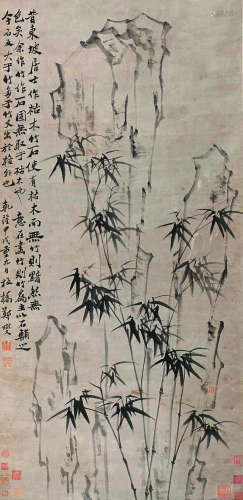 昔東坡居士作枯木竹石使有枯木而無竹則黯然無
色矣余作竹作石固無取於枯木也意在畫竹則竹為主以石輔之
今石反大于竹多于竹又出於格外也 乾隆甲戌重九日 板橋鄭燮